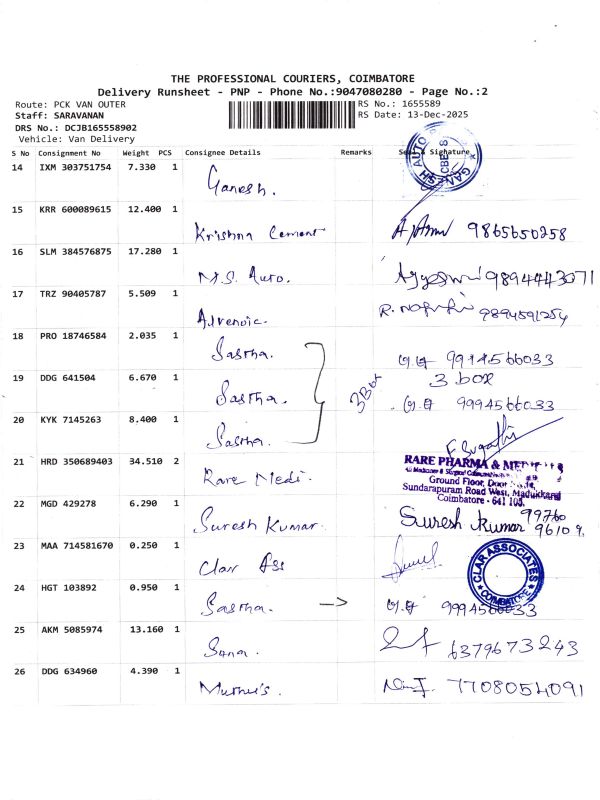 THE PROFESSIONAL COURIERS, COIMBATORE
Delivery Runsheet - PNP - Phone No.:9047080280 - Page No.:2
Route: PCK VAN OUTER RS No.: 1655589
Staff: SARAVANAN RS Date: 13-Dec-2025
DRS No.: DCJB165558902
Vehicle: Van Delivery
S No Consignment No Weight PCS Consignee Details Remarks Signature
GANESH AUTO CBE
14 IXM 303751754 7.330 1 Ganesh.
15 KRR 600089615 12.400 1 Krishna Cement 9865650258
16 SLM 384576875 17.280 1 M.S. Auto. 9894443071
17 TRZ 90405787 5.509 1 Advenoic. R. 9894591254
18 PRO 18746584 2.035 1 Sastha. 9994566033
19 DDG 641504 6.670 1 Sastha. 3 Box 3 box
9994566033
20 KYK 7145263 8.400 1 Sastha.
21 HRD 350689403 34.510 2 Rare Medi.
RARE PHARMA &
Ground Floor, Door
Sundarapuram Road West, Madukkarai
Coimbatore - 641 105.
22 MGD 429278 6.290 1 Suresh Kumar. Suresh Kumar 99760
96109
23 MAA 714581670 0.250 1 Clar Ass
CLAR ASSOCIATES COIMBATORE
24 HGT 103892 0.950 1 Sastha. → 9994566033
25 AKM 5085974 13.160 1 Sana. 6379673243
26 DDG 634960 4.390 1 Muthu's. 7708054091